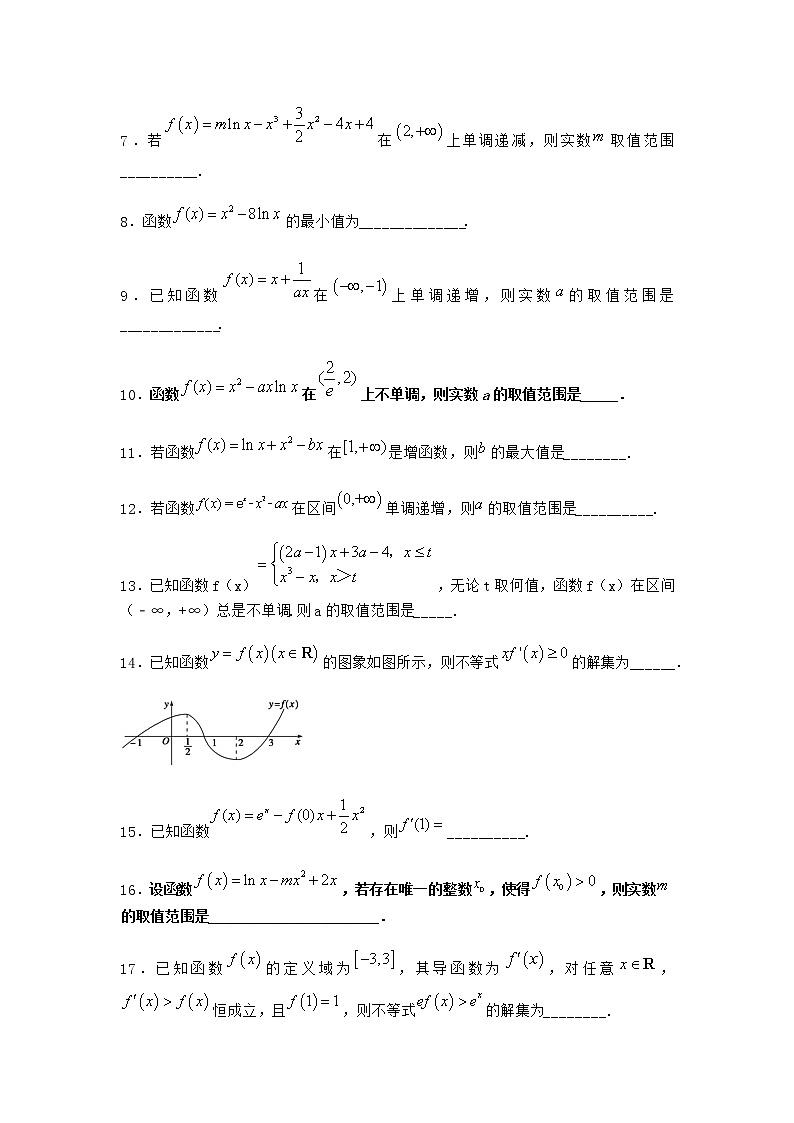 7．若 f(x)=mln x−x³+\frac{3}{2}x²−4x+4 在 (2,+∞) 上单调递减，则实数 m 取值范围
__________．
8．函数 f(x)=x²−8ln x 的最小值为______________．
9．已知函数 f(x)=x+\frac{1}{ax} 在 (−∞,−1) 上单调递增，则实数 a 的取值范围是
_____________．
10．函数 f(x)=x²−axln x 在 (\frac{2}{e},2) 上不单调，则实数 a 的取值范围是_____．
11．若函数 f(x)=ln x+x²−bx 在[1,+∞)是增函数，则 b 的最大值是________．
12．若函数 f(x)=eˣ-x²-ax 在区间 (0,+∞) 单调递增，则 a 的取值范围是__________．
13．已知函数 f（x）={(2a−1)x+3a−4，x≤t
x³−x，x＞t ，无论 t 取何值，函数 f（x）在区间
（﹣∞，+∞）总是不单调.则 a 的取值范围是_____．
14．已知函数 y=f(x)(x∈R) 的图象如图所示，则不等式 xf'(x)≥0 的解集为______．
y y=f(x)
−1 O \frac{1}{2} 1 2 3 x
15．已知函数 f(x)=eˣ−f(0)x+\frac{1}{2}x²，则 f′(1)=__________．
16．设函数 f(x)=ln x−mx²+2x，若存在唯一的整数 x₀，使得 f(x₀)>0，则实数 m
的取值范围是______________________．
17．已知函数 f(x) 的定义域为 [−3,3]，其导函数为 f′(x)，对任意 x∈R，
f′(x)>f(x) 恒成立，且 f(1)=1，则不等式 ef(x)>eˣ 的解集为________．